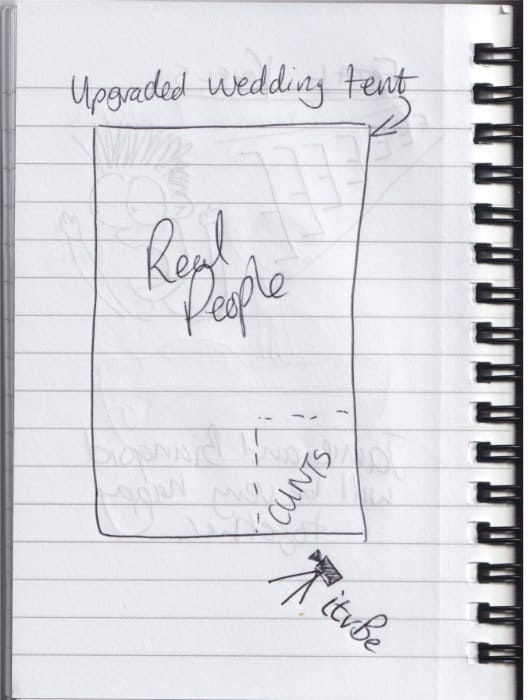 Upgraded wedding tent
Real
People
CUNTS
itvBe